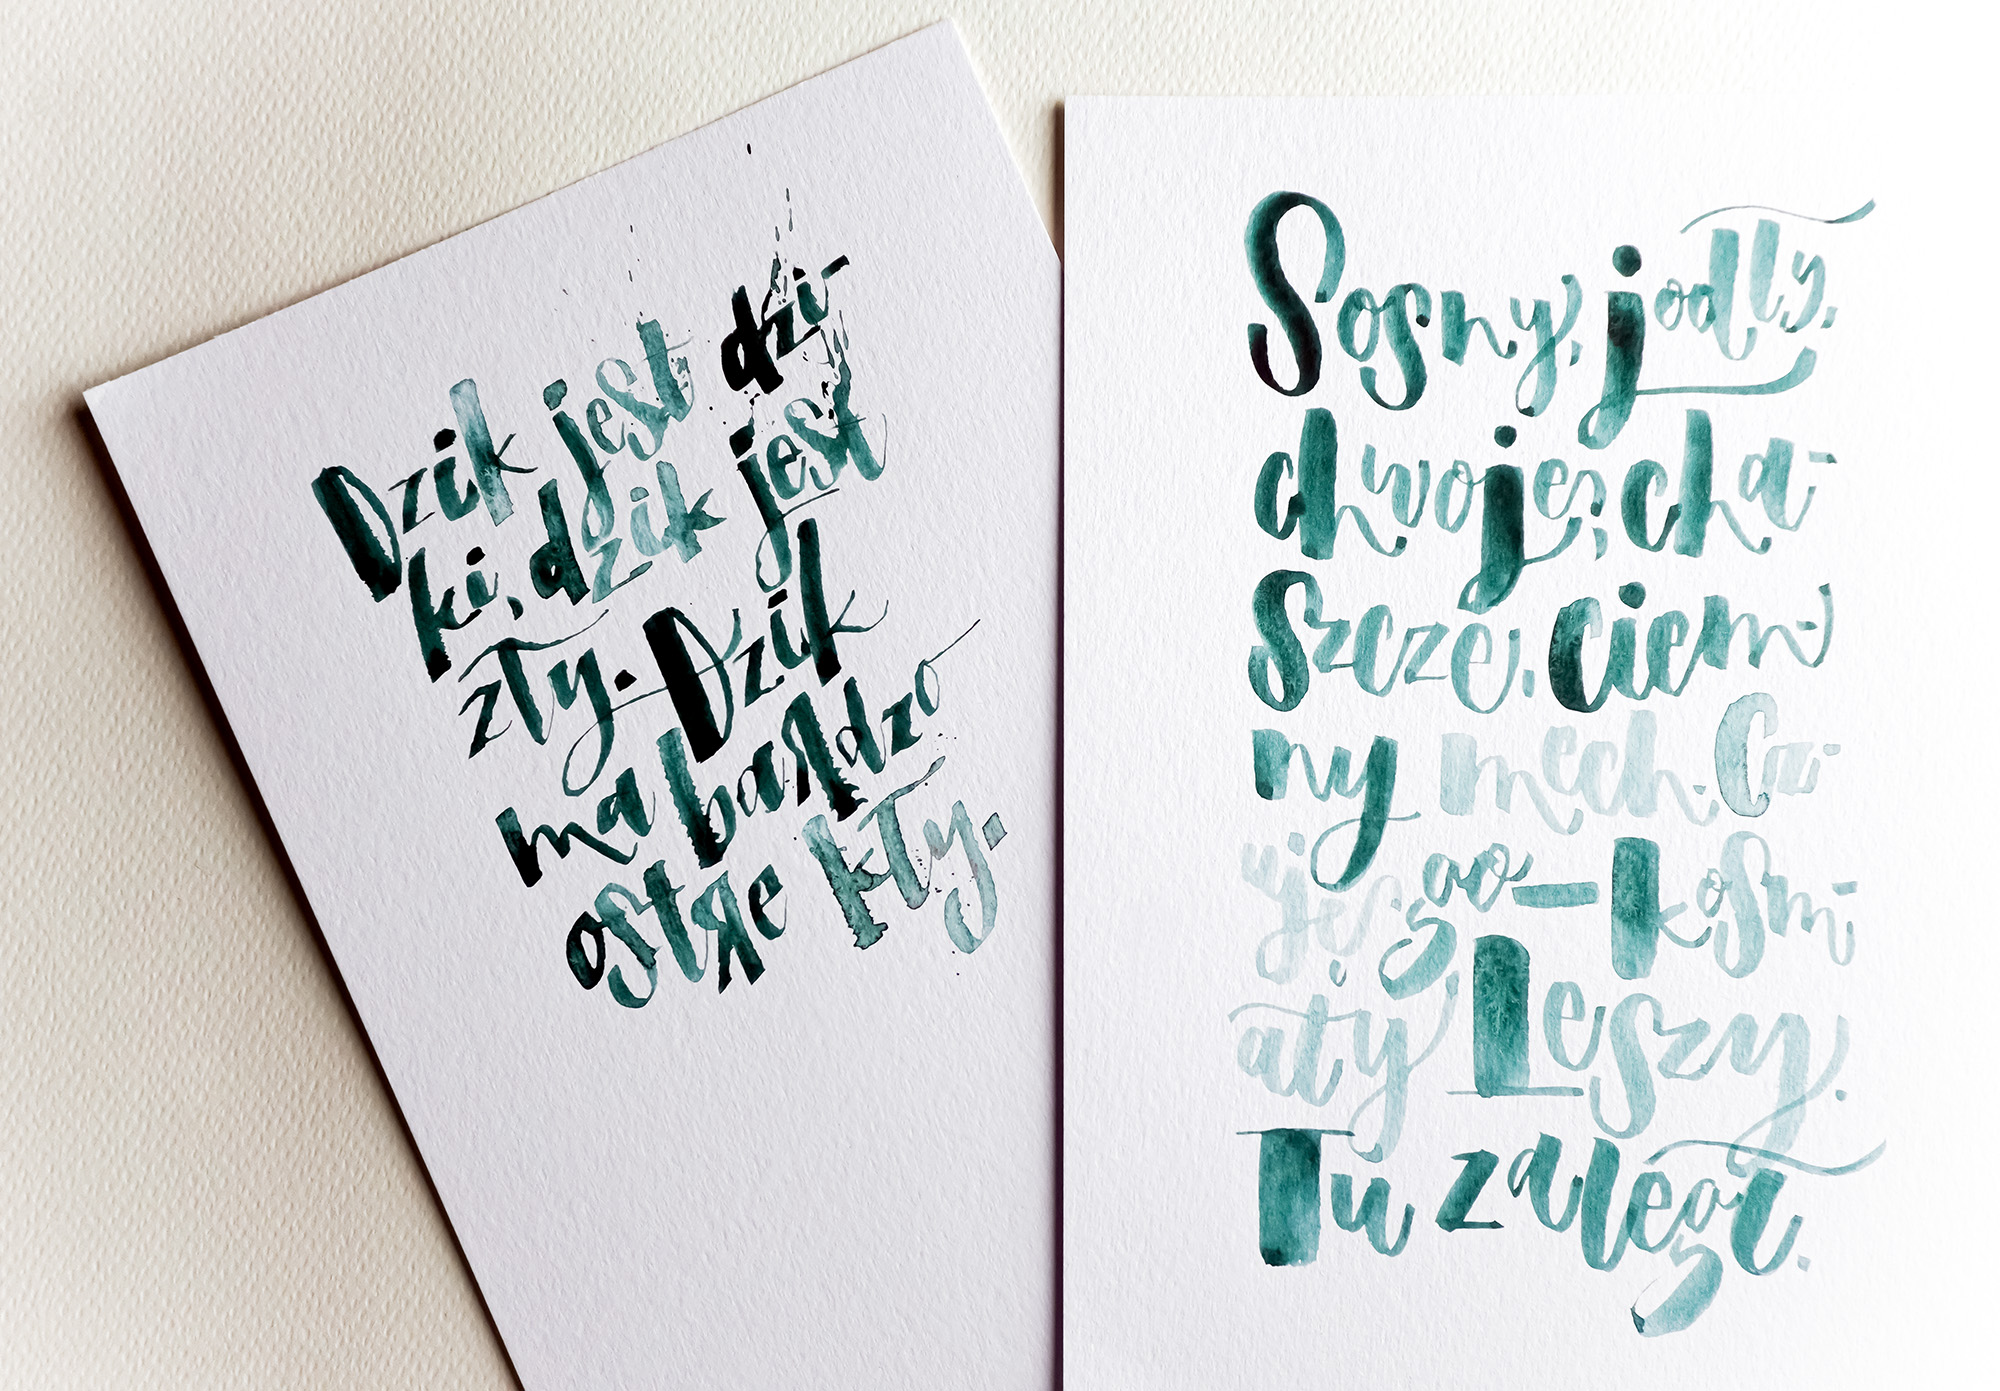 Dzik jest dzi-
ki, dzik jest
zły. Dzik
ma bardzo
ostre kły.
Sosny, jodły,
chwoje, cha-
szcze, ciem-
ny mech. Czu-
ję go — kosm-
aty Leszy.
Tu zaległ.